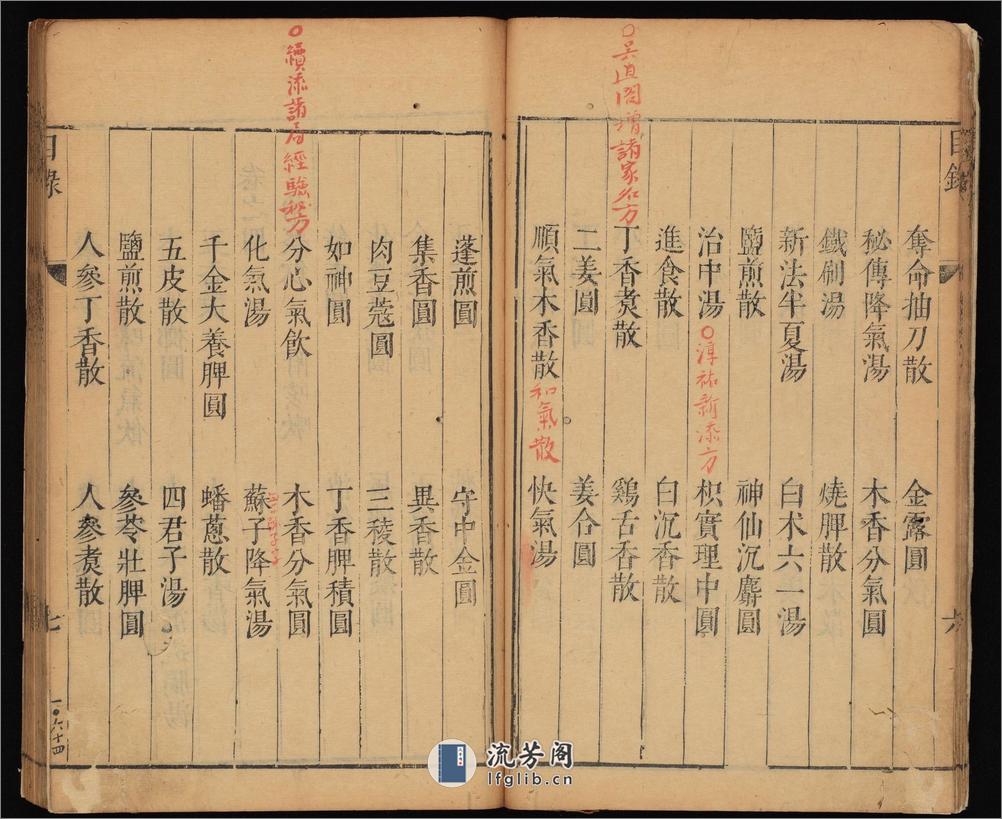 目錄
六
奪命抽刀散 金露圓
秘傳降氣湯 木香分氣圓
鐵刷湯 燒脾散
新法半夏湯 白朮六一湯
鹽煎散 神仙沉麝圓
治中湯 枳實理中圓
〇淳祐新添方
進食散 白沉香散
〇吳直閣增諸家名方
丁香煑散 鷄舌香散
二姜圓 姜合圓
順氣木香散 快氣湯
和氣散
蓬煎圓 守中金圓
集香圓 異香散
肉豆蔻圓 三稜散
如神圓 丁香脾積圓
〇續添諸局經驗秘方
分心氣飲 木香分氣圓
化氣湯 蘇子降氣湯
千金大養脾圓 蟠蔥散
五皮散 四君子湯
鹽煎散 參苓壯脾圓
人參丁香散 人參煑散
目錄
七
一〇六十四
流芳阁
lfglib.cn